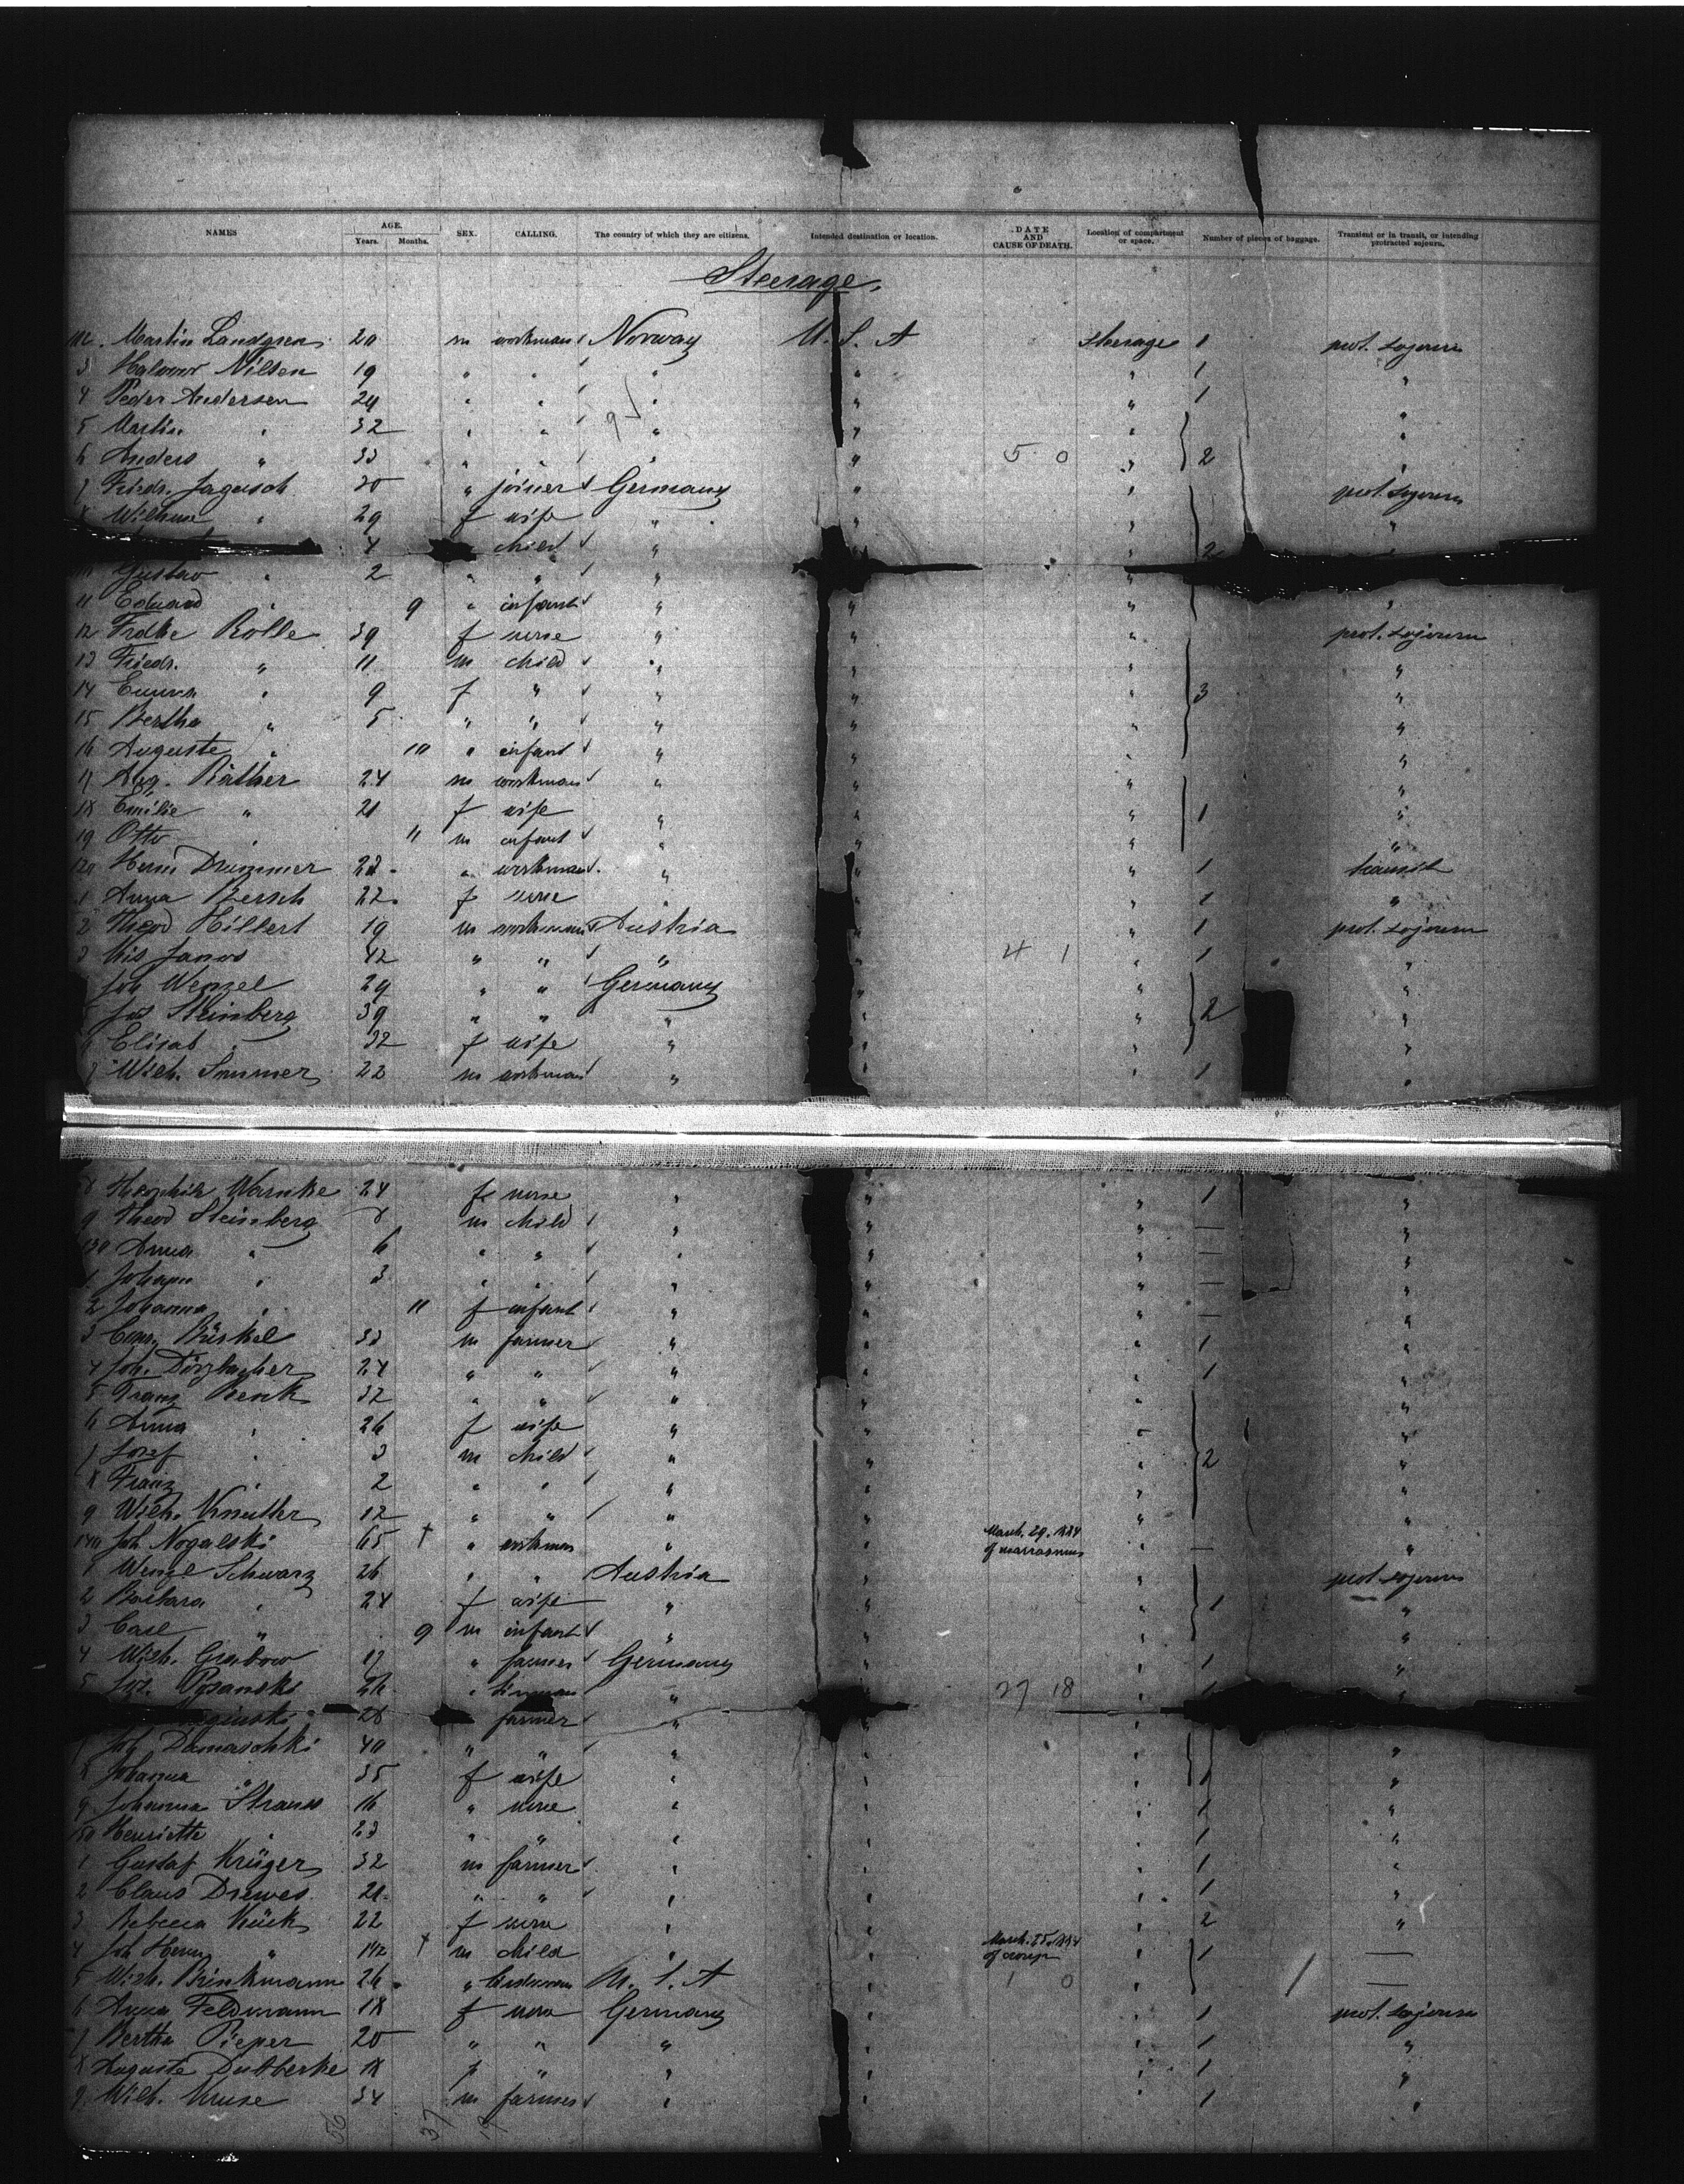 NAMES AGE. Years. Months. SEX. CALLING. The country of which they are citizens. Intended destination or location. DATE AND CAUSE OF DEATH. Location of compartment or space. Number of pieces of baggage. Transient or in transit, or intending protracted sojourn.
Steerage.
Martin Landgren 20 m workman Norway U. S. A steerage 1 prot. sojourn
3 Nilsen 19 " " " " " 1 "
4 Peder Andersen 24 " " " " " 1 "
5 Martin " 32 " " " " " "
6 Anders " 33 " " " " 5 0 " 2 "
7 Friedr. Jagusch 30 " joiner Germany " " prot. sojourn
8 " 29 f wife " " " "
4 child " " " 2
Gustav " 2 " " " " "
11 Eduard " 9 " infant " " " "
12 Frdke Rolle 39 f none " " " prot. sojourn
13 Friedr. " 11 m child " " " "
14 Emma " 9 f " " " " 3 "
15 Bertha " 5 " " " " " "
16 Auguste " 10 " infant " " " "
17 Aug. Räther 24 m workman " " " "
18 Emilie " 21 f wife " " " 1 "
19 Otto " 11 m infant " " " "
120 Herm Drummer 22 " workman " " " 1 transit
1 Anna Bersch 22 f none " " " 1 "
2 Theod Hillert 19 m workman Austria " " 1 prot. sojourn
3 Kis Janos 42 " " " " 4 1 " 1 "
Joh Wenzel 29 " " Germany " " "
Jos Steinberg 39 " " " " " 2 "
6 Elisab " 32 f wife " " " "
7 Wilh. 22 m workman " " " 1 "
8 Warnke 24 f none " " " 1 "
9 Theod Steinberg 8 m child " " " — "
130 Anna " 6 " " " " " — "
1 Johann " 3 " " " " " — "
2 Johanna " 11 f infant " " " — "
3 33 m farmer " " " 1 "
4 Joh. Dörzbacher 24 " " " " " 1 "
5 Franz Benk 32 " " " " " "
6 Anna " 26 f wife " " " "
7 Josef " 3 m child " " " 2 "
8 Franz " 2 " " " " " "
9 Wilh. Knuther 12 " " " " " "
140 Joh Nogalski 65 † " workman " " March. 29. 1884 of marrasmus " — "
1 Wenzl Schwarz 26 " " Austria " " prot. sojourn
2 Barbara " 24 f wife " " " 1 "
3 Carl " 9 m infant " " " "
4 Wilh. Grabow 17 " farmer Germany " " 1 "
5 " " " 27 18 " 1 "
28 farmer " " "
7 Joh Damaschki 40 " " " " " "
8 Johanna " 35 f wife " " " 1 "
9 Johanna Strauss 16 " none " " " 1 "
150 Henriette " 23 " " " " " 1 "
1 Gustaf Krüger 32 m farmer " " " 1 "
2 Claus Drewes 21 " " " " " 1 "
3 Rebecca Kück 22 f none " " " 2 "
4 Joh Herm " † m child " " March. 25. 1884 of croup " 1 —
5 Wilh. Brinkmann 26 " U. S. A " 1 0 " —
6 Anna Feldmann 18 f none Germany " " 1 prot. sojourn
7 Bertha Pieper 20 " " " " " 1 "
8 Auguste Dubberke 18 f " " " " 1 "
9 Wilh. Kruse 34 m farmer " " " 1 "
56 37 19